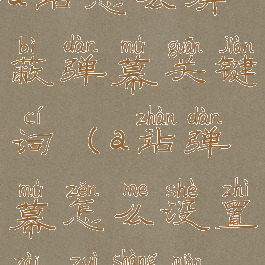 a站怎么屏
bì dàn mù guān jiàn
蔽弹幕关键
cí zhàn dàn
词(a站弹
mù zěn me shè zhì
幕怎么设置